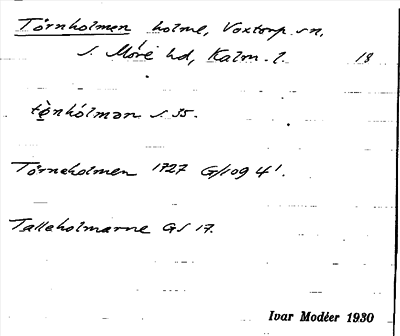 Törnholmen holme, Voxtorp sn,
S. Möre hd, Kalm. l. 18
tö̀nhólmən S. 35.
Törneholmen 1727 G/109 4¹.
Talleholmarne GS 17.
Ivar Modéer 1930